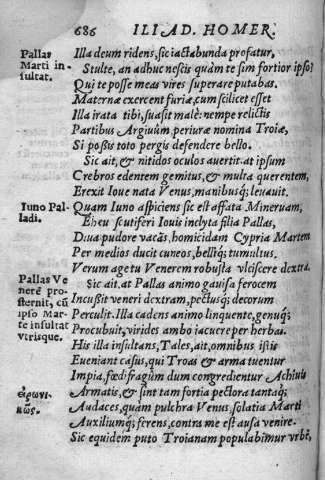 686 ILIAD. HOMER.
Pallas
Marti in-
sultat.
Illa deum ridens, sic iactabunda profatur,
Stulte, an adhuc nescis quàm te sim fortior ipso?
Qui te posse meas vires superare putabas.
Maternæ exercent furiæ, cum scilicet esset
Illa irata tibi, suasit malè: nempe relictis
Partibus Argiuûm, periuræ nomina Troiæ,
Si possis toto pergis defendere bello.
Sic ait, & nitidos oculos auertit. at ipsum
Crebros edentem gemitus, & multa querentem,
Erexit Ioue nata Venus, manibusq; leuauit.
Iuno Pal-
ladi.
Quam Iuno aspiciens sic est affata Mineruam,
Eheu scutiferi Iouis inclyta filia Pallas,
Dua pudore vacãs, homicidam Cypria Martem
Per medios ducit cuneos, belliq; tumultus.
Verum agetu Venerem robusta vlciscere dextra.
Pallas Ve
nerē pro-
sternit, cū
ipso Mar-
te insultat
vtrisque.
Sic ait. at Pallas animo gauisa ferocem
Incussit veneri dextram, pectusq; decorum
Perculit. Illa cadens animo linquente, genuq;
Procubuit, virides ambo iacuere per herbas.
His illa insultans, Tales, ait, omnibus isti
Eueniant casus, qui Troas & arma tuentur
Impia, fœdifragûm dum congrediuntur Achiuis
εἰρωνι-
κῶς.
Armatis, & sint tam fortia pectora tantaq;
Audaces, quàm pulchra Venus, solatia Marti
Auxiliumq; ferens, contra me est ausa venire.
Sic equidem puto Troianam populabimur vrbē,